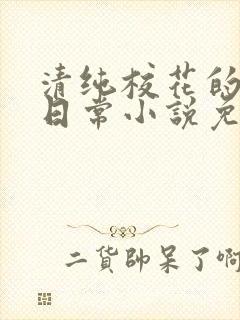 清纯校花的
日常小説免
二貨帥呆了啊